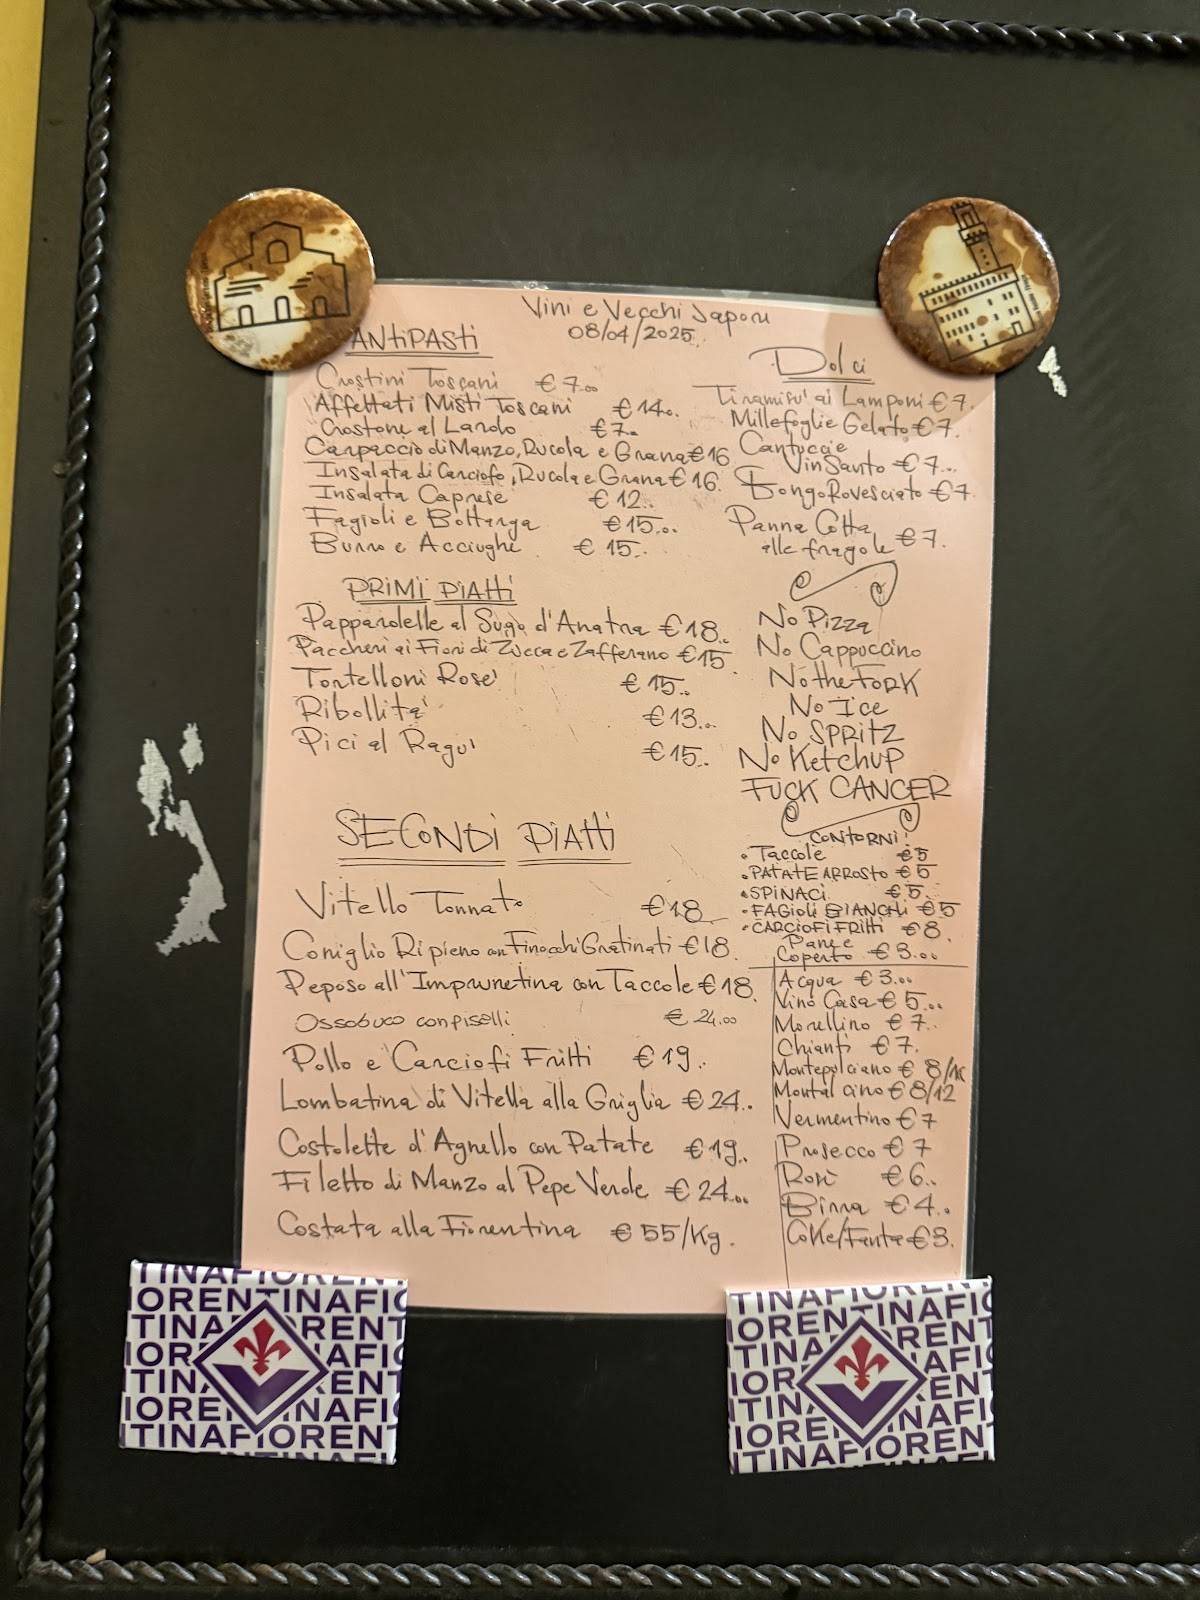 Vini e Vecchi Sapori
08/04/2025
ANTIPASTI
Crostini Toscani € 7.00
Affettati Misti Toscani € 14..
Crostone al Lardo € 7..
Carpaccio di Manzo, Rucola e Grana € 16
Insalata di Carciofo, Rucola e Grana € 16.
Insalata Caprese € 12..
Fagioli e Bottarga € 15...
Burro e Acciughe € 15..
PRIMI PIATTI
Pappardelle al Sugo d'Anatra € 18..
Paccheri ai Fiori di Zucca e Zafferano € 15
Tortelloni Rose' € 15..
Ribollita' € 13...
Pici al Ragu' € 15..
SECONDI PIATTI
Vitello Tonnato € 18
Coniglio Ripieno con Finocchi Gratinati € 18.
Peposo all'Imprunetina con Taccole € 18.
Ossobuco con piselli € 24.00
Pollo e Carciofi Fritti € 19..
Lombatina di Vitella alla Griglia € 24..
Costolette d'Agnello con Patate € 19..
Filetto di Manzo al Pepe Verde € 24...
Costata alla Fiorentina € 55/Kg.
Dolci
Tiramisu' ai Lamponi € 7.
Millefoglie Gelato € 7.
Cantucci e
Vin Santo € 7...
Tongo Rovesciato € 7
Panna Cotta
alle fragole € 7.
No Pizza
No Cappuccino
No the FORK
No Ice
No SPRITZ
No KetcHUP
FUCK CANCER
CONTORNI!
• Taccole € 5
• PATATE ARROSTO € 5
• SPINACI € 5.
• FAGIOLI BIANCHI € 5
• CARCIOFI FRITTI € 8.
Pane e
Coperto € 3...
Acqua € 3...
Vino Casa € 5...
Morellino € 7..
Chianti € 7.
Montepulciano € 8/
Montalcino € 8/12
Vermentino € 7
Prosecco € 7
Rosè € 6..
Birra € 4..
Coke/Fanta € 3.
TINAFIOREN
ORENTINAFI
TINA ORENT
IOR AFI
TIN ENT
IOREN INAFI
TINAFIOREN
TINAFIOREN
IORENTINAFI
TINA RENT
IOR AFI
TIN REN
IORE NAFI
TINAFIOREN